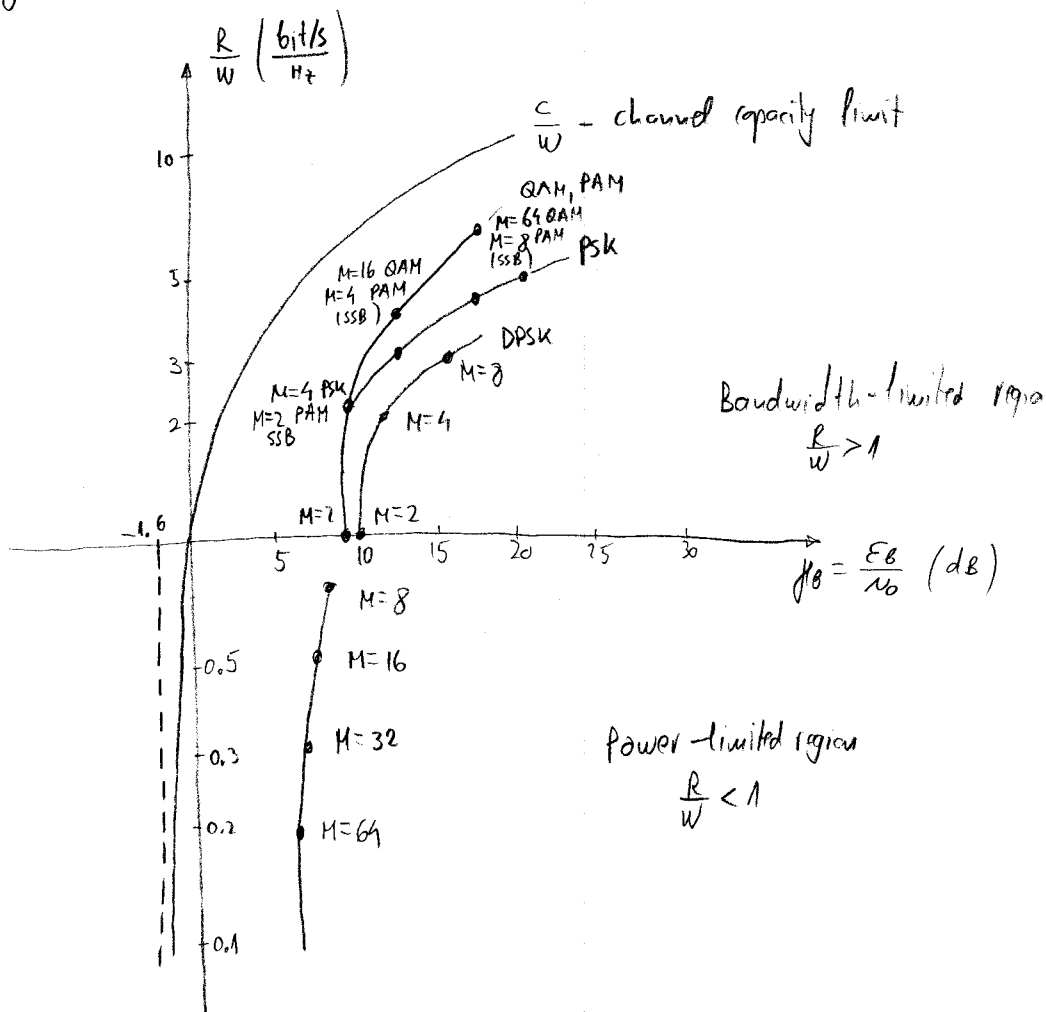 R/W (bit/s / Hz)
C/W - channel capacity limit
10
QAM, PAM
M=64 QAM
M=8 PAM
(SSB)
PSK
M=16 QAM
M=4 PAM
(SSB)
5
DPSK
3
M=8
M=4 PSK
M=2 PAM
SSB
M=4
2
Bandwidth-limited regio
R/W > 1
M=2
M=2
-1.6
5
10
15
20
25
30
γB = EB/N0 (dB)
M=8
0.5
M=16
0.3
M=32
Power-limited region
R/W < 1
0.2
M=64
0.1